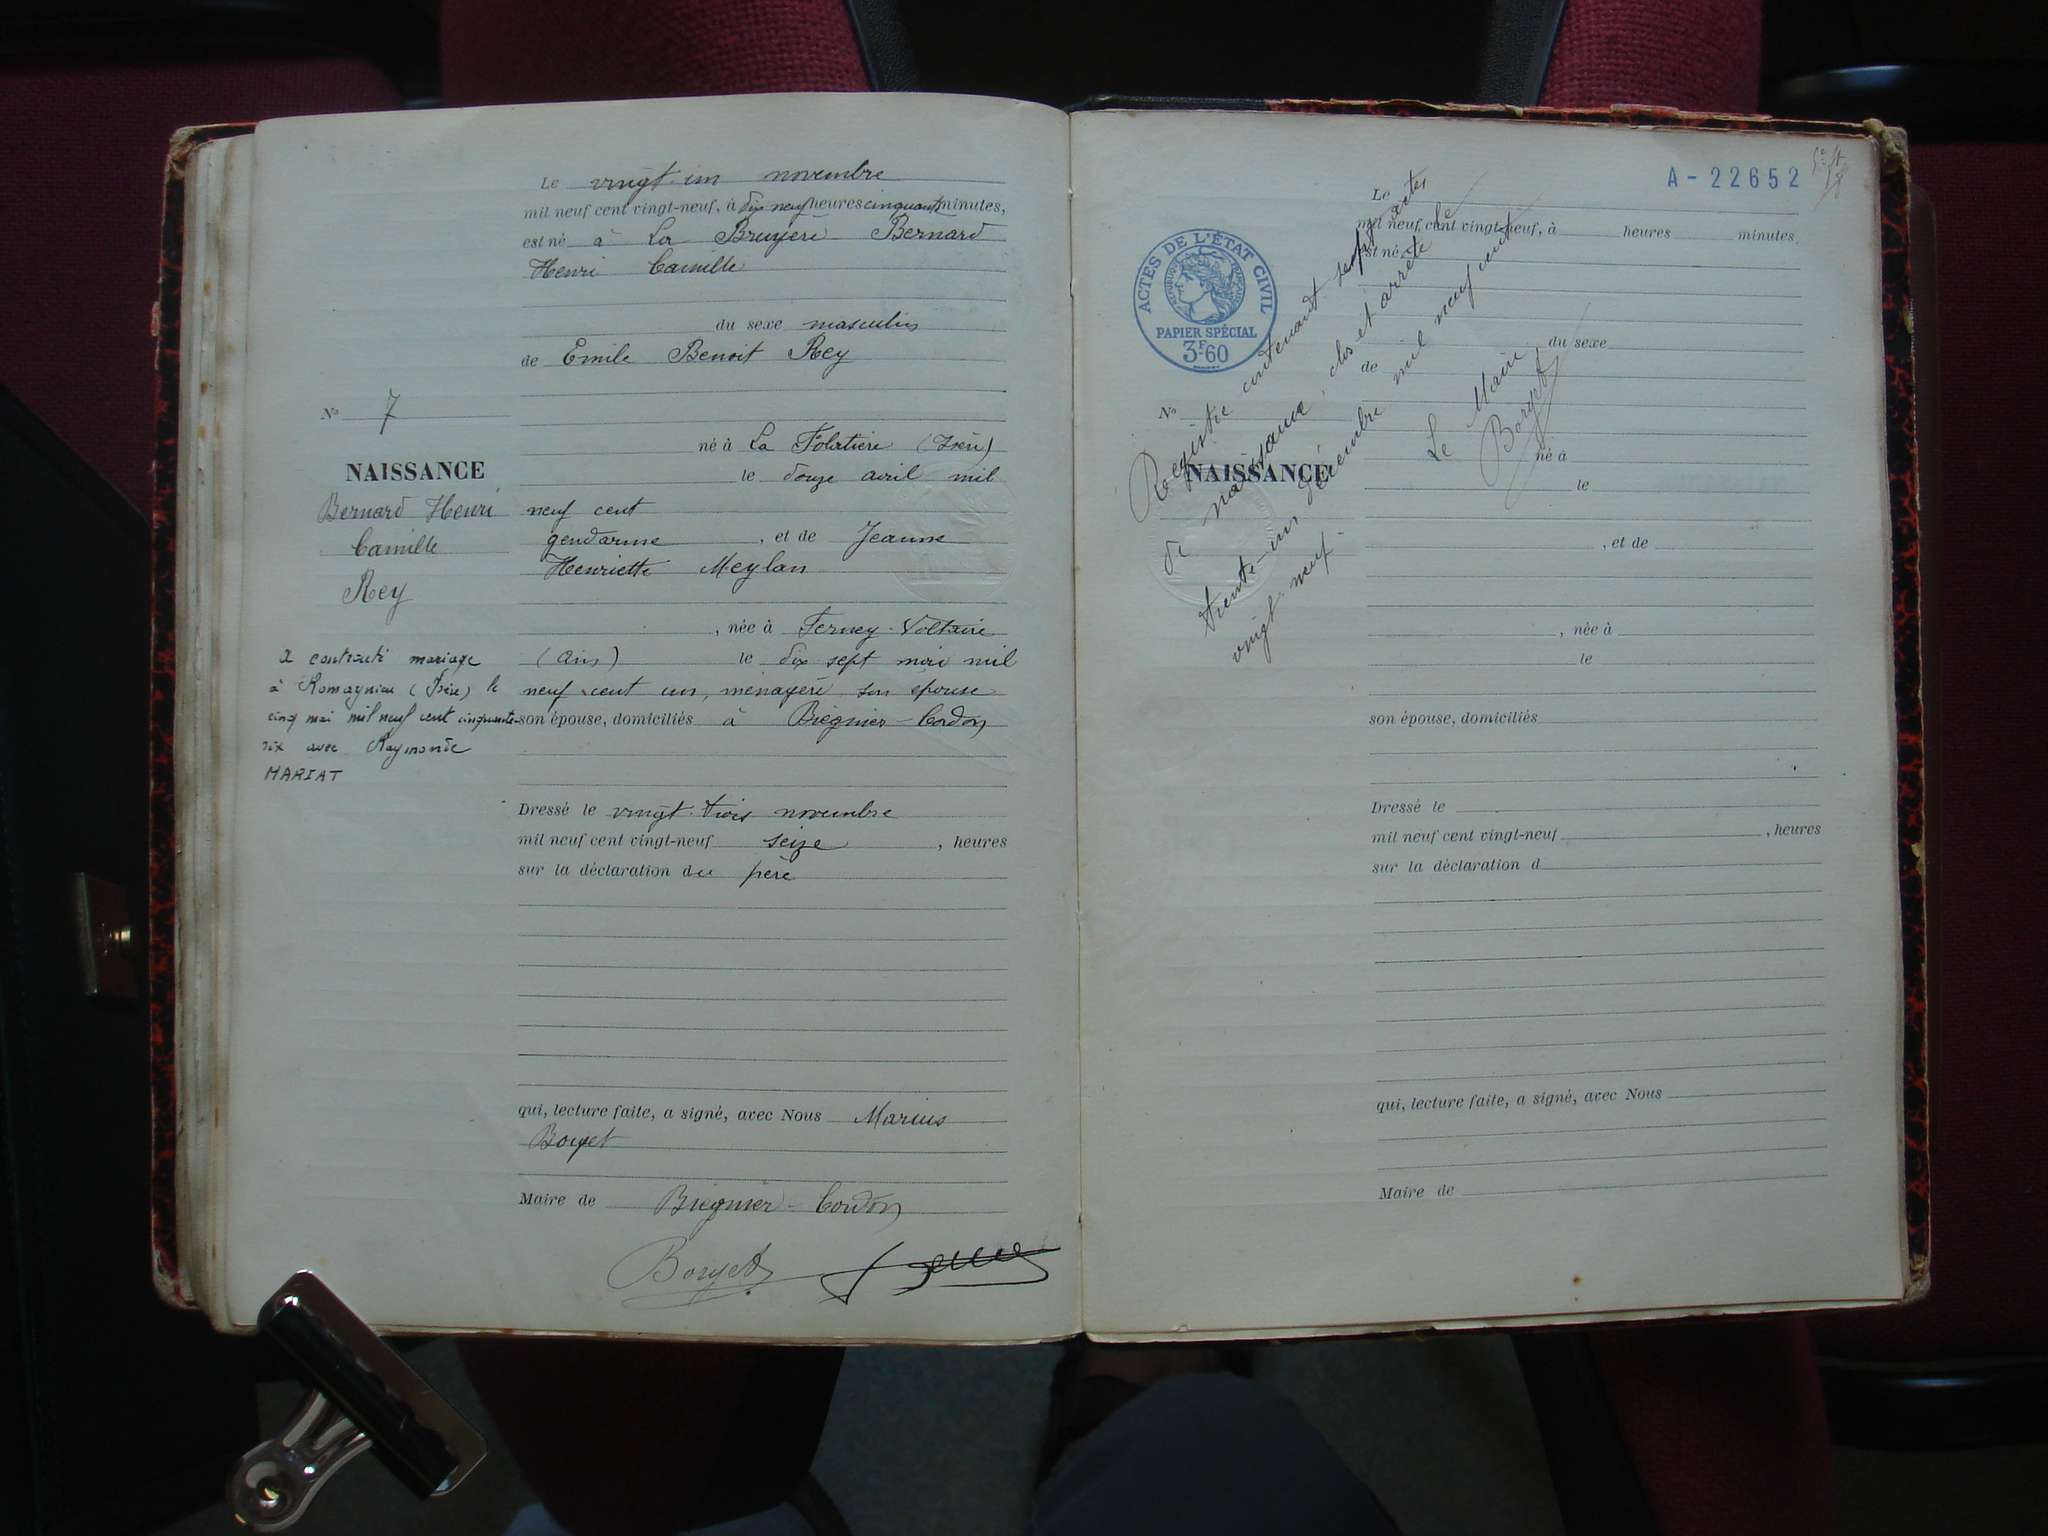 Le vingt-un novembre
mil neuf cent vingt-neuf, à dix neuf heures cinquante minutes,
est né à La Bruyère Bernard
Henri Camille
du sexe masculin
de Emile Benoit Rey
No 7
né à La Folatière (Isère)
NAISSANCE
le douze avril mil
Bernard Henri
neuf cent
Camille
gendarme, et de Jeanne
Henriette Meylan
Rey
, née à Ferney-Voltaire
(Ain) le dix sept mai mil
neuf cent un, ménagère, son épouse
son épouse, domiciliés à Brégnier-Cordon
a contracté mariage
à Romagnieu (Isère) le
cinq mai mil neuf cent cinquante-
six avec Raymonde
MARIAT
Dressé le vingt-trois novembre
mil neuf cent vingt-neuf seize, heures
sur la déclaration du père
qui, lecture faite, a signé, avec Nous Marius
Borget
Maire de Brégnier-Cordon
Borget
A-22652
ACTES DE L'ÉTAT CIVIL
PAPIER SPÉCIAL
3F60
Le
mil neuf cent vingt-neuf, à heures minutes
est né
du sexe
de
No
né à
NAISSANCE
le
, et de
, née à
le
son épouse, domiciliés
Dressé le
mil neuf cent vingt-neuf, heures
sur la déclaration d
qui, lecture faite, a signé, avec Nous
Maire de
Registre contenant sept actes
de naissance, clos et arrêté le
trente-un décembre mil neuf cent
vingt-neuf.
Le Maire
Borget